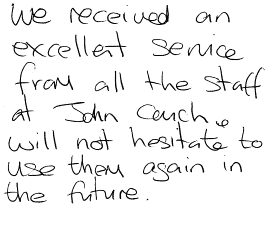 We received an
excellent service
from all the staff
at John Couch,
will not hesitate to
use them again in
the future.